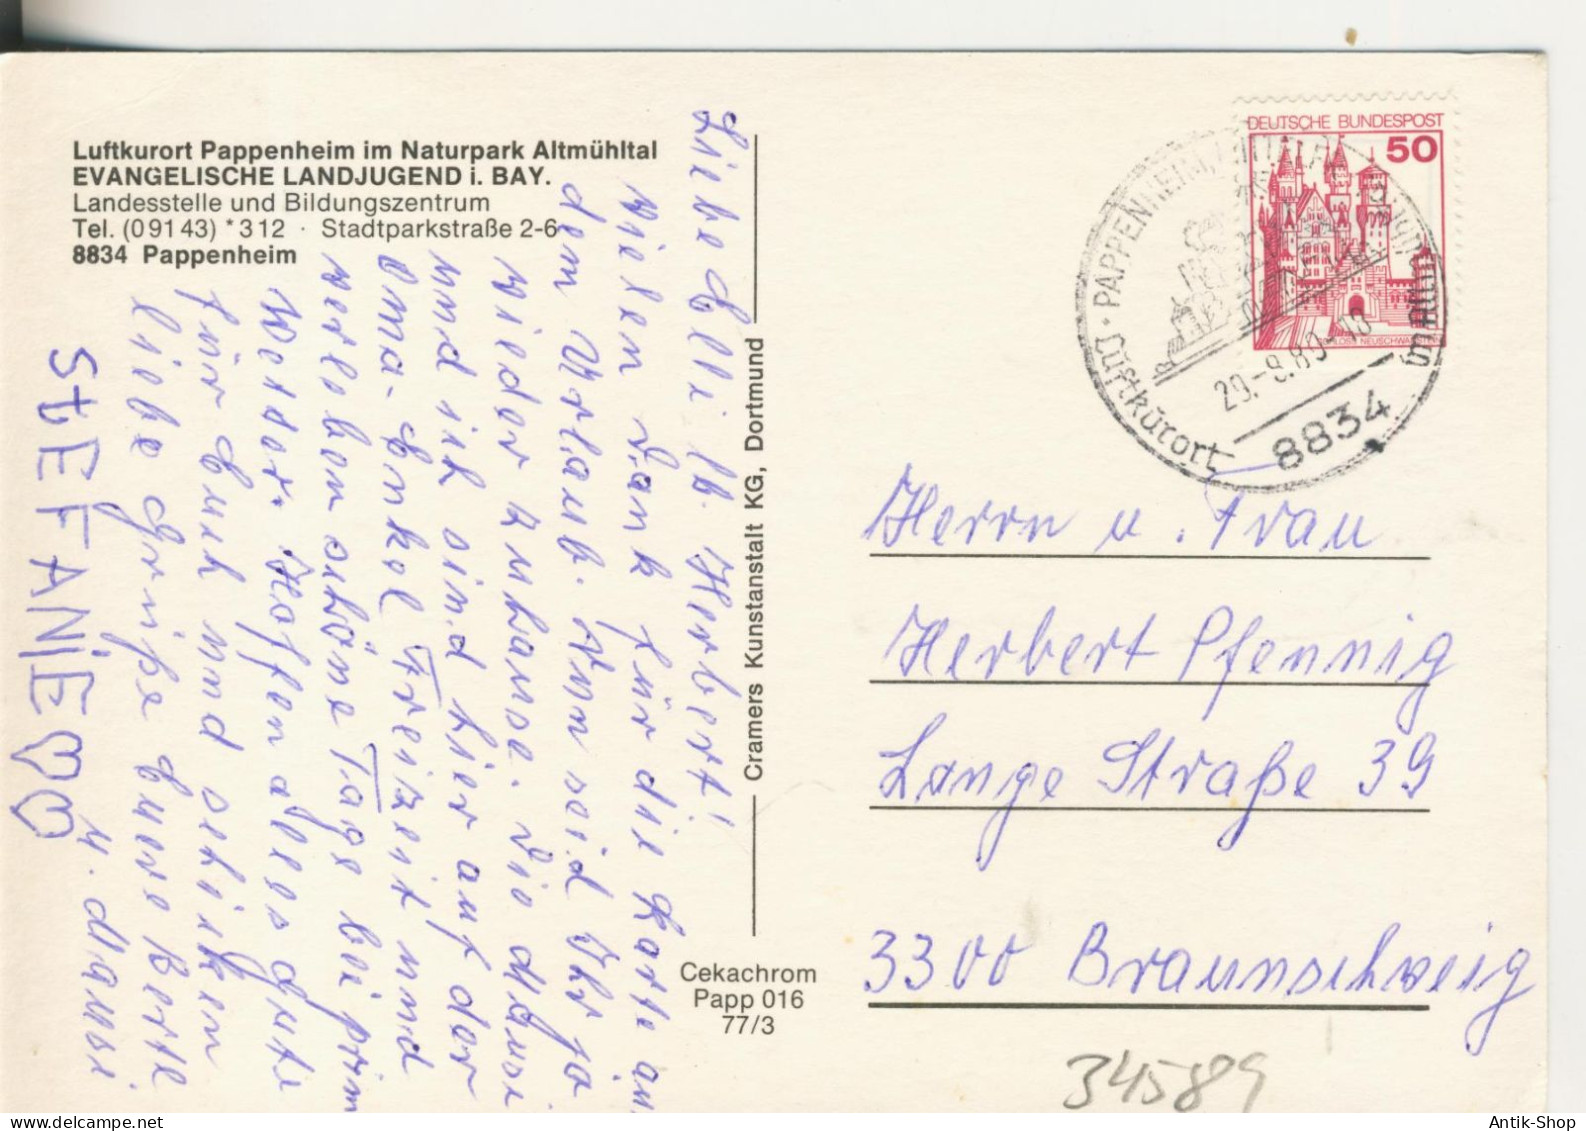 Luftkurort Pappenheim im Naturpark Altmühltal
EVANGELISCHE LANDJUGEND i. BAY.
Landesstelle und Bildungszentrum
Tel. (0 91 43) * 3 12 · Stadtparkstraße 2-6
8834 Pappenheim
Liebe Elli lb. Herbert!
Vielen Dank für die Karte aus
dem Urlaub. Nun seid Ihr ja
wieder zuhause. Die Mausi
und ich sind hier auf der
Oma-Enkel Freizeit und
verleben schöne Tage bei prima
Wetter. Hoffen alles Gute
für Euch und schicken
liebe Grüße Eure Berte
u. Mausi
STEFANIE
Cramers Kunstanstalt KG, Dortmund
Cekachrom
Papp 016
77/3
DEUTSCHE BUNDESPOST
50
SCHLOSS NEUSCHWANSTEIN
PAPPENHEIM
29.-9.80-18
8834
Luftkurort
im Altmühltal
Herrn u. Frau
Herbert Pfennig
Lange Straße 39
3300 Braunschweig
34589
Antik-Shop